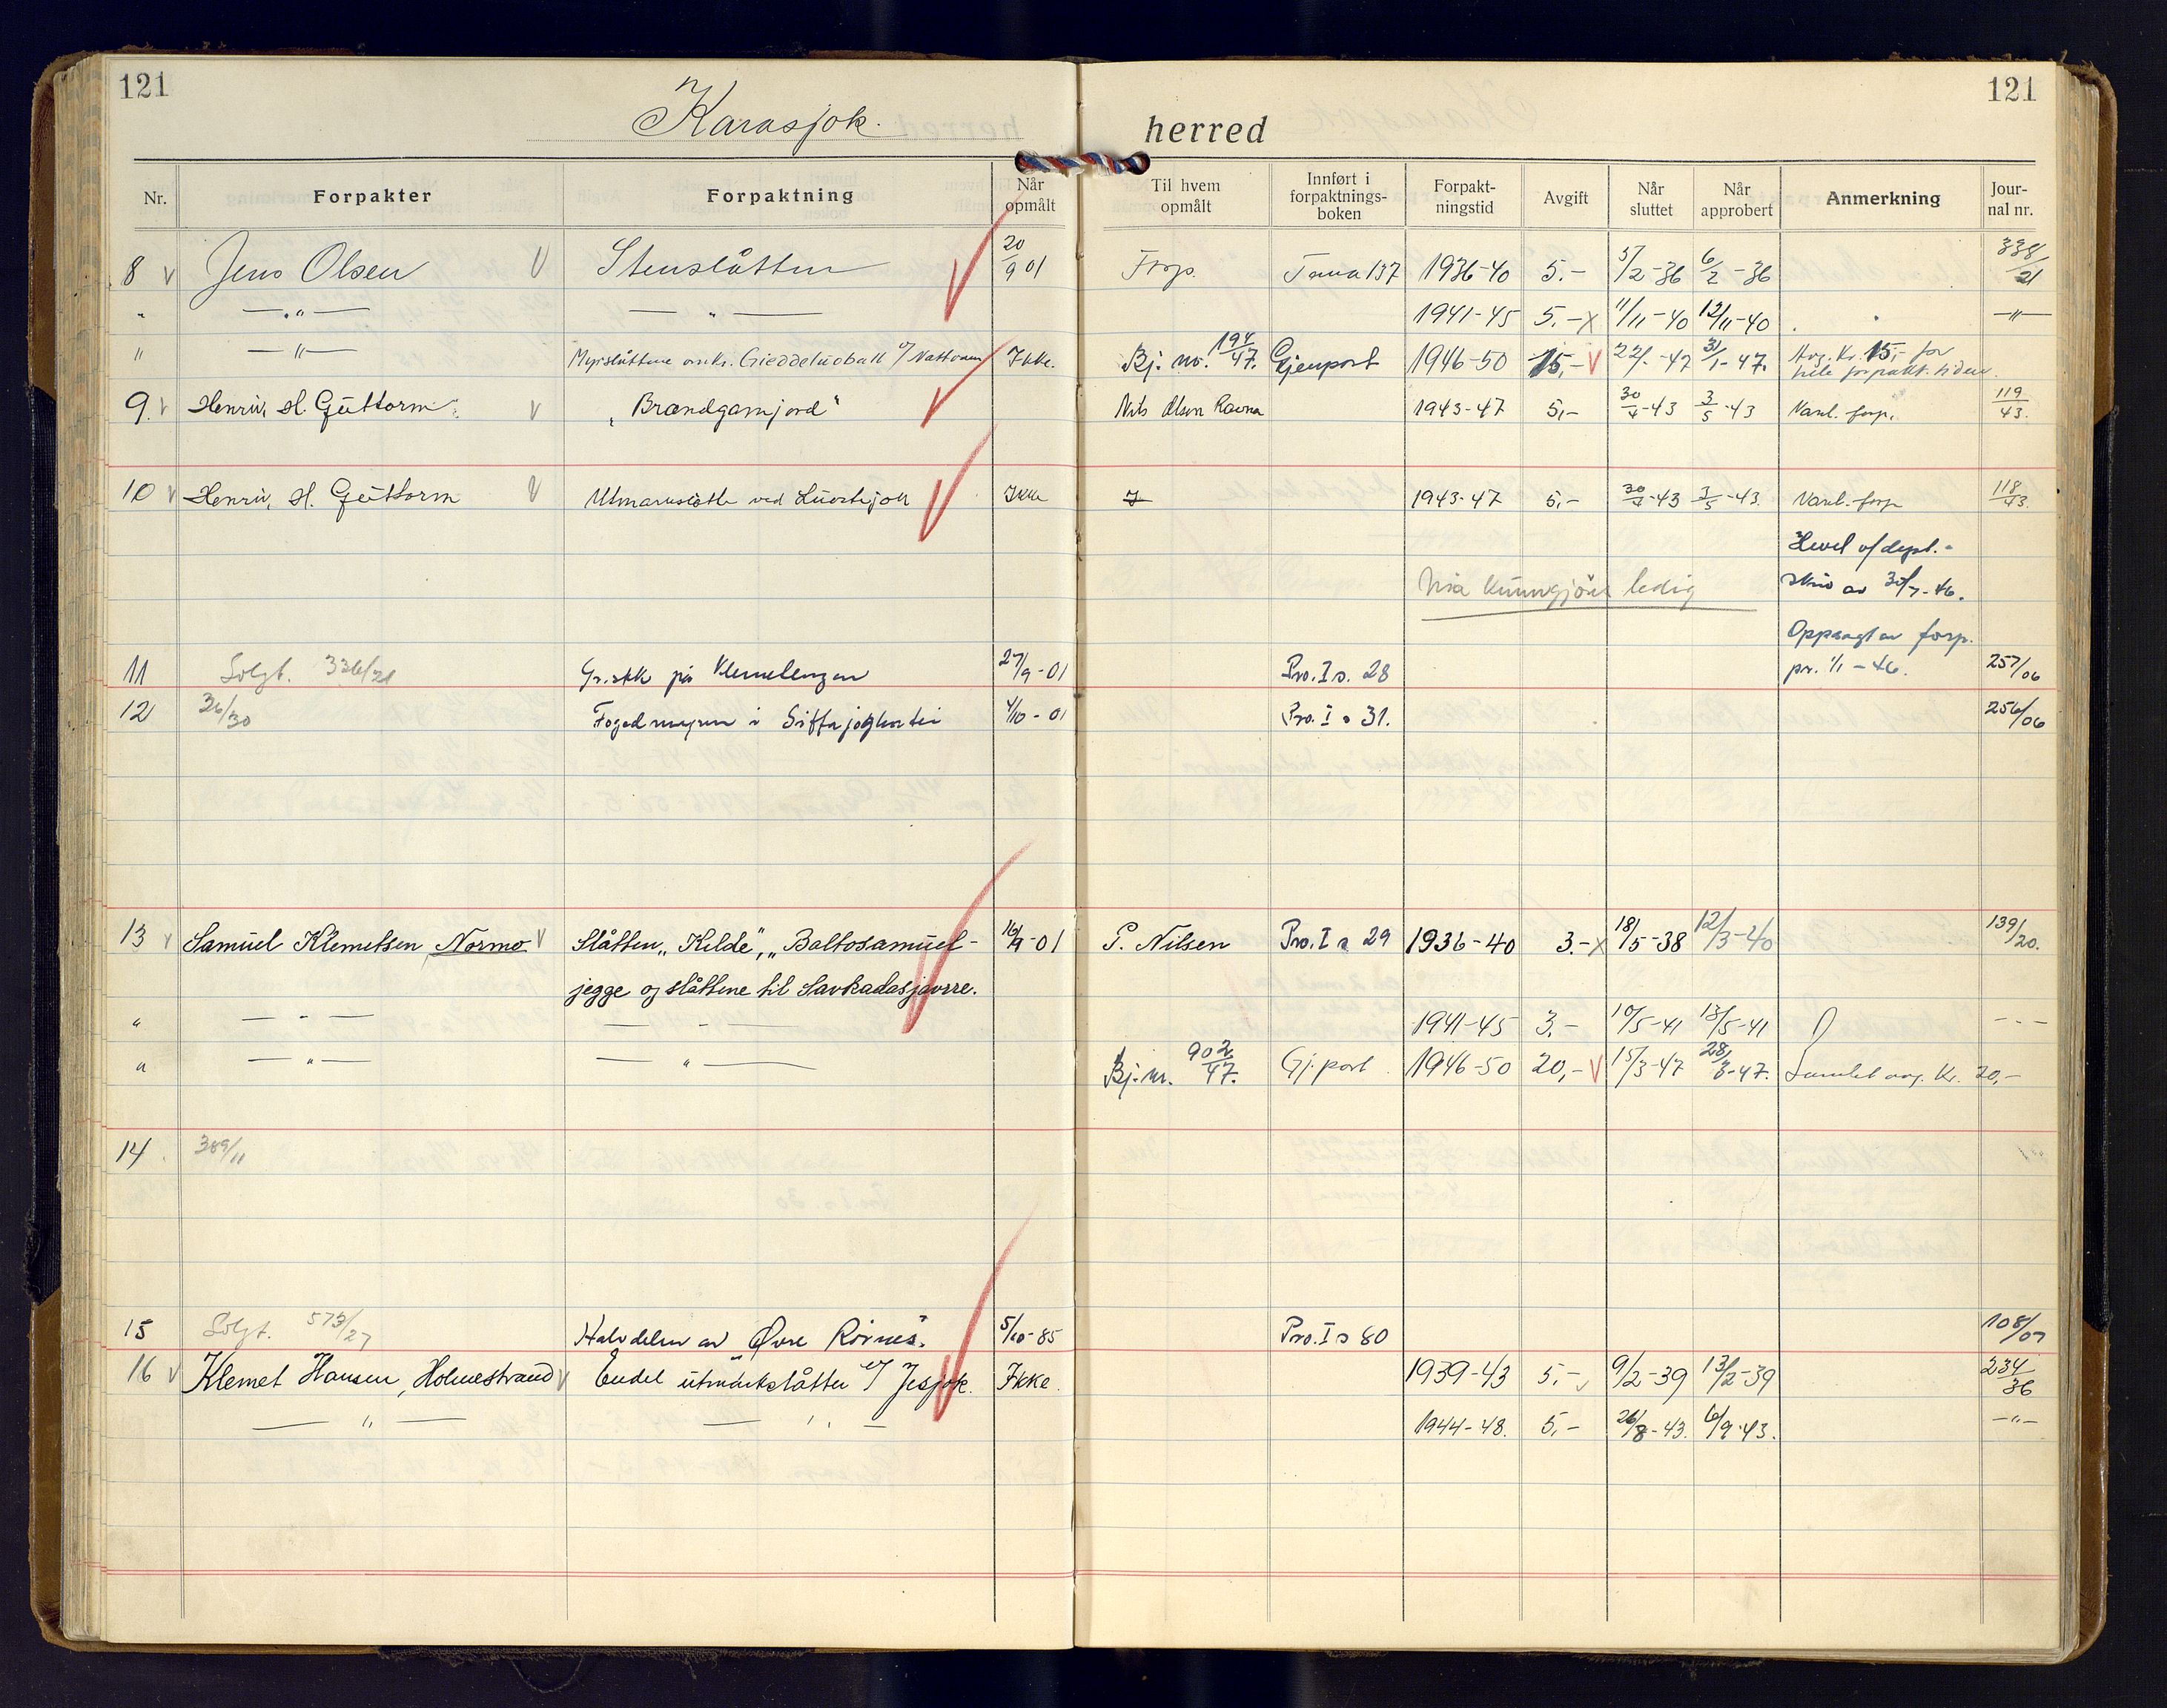 121
121
Karasjok. herred
Nr. Forpakter Forpaktning Når opmålt Til hvem opmålt Innført i forpaktnings-boken Forpakt-ningstid Avgift Når sluttet Når approbert Anmerkning Jour-nal nr.
8 V Jens Olsen V Stenslåtten 20/9 01 Forp. Tana 137 1936-40 5.- 5/2-36 6/2-36 338/21
" —„— — " — 1941-45 5.-x 11/11-40 12/11-40 —"—
" —"— Myrslåttene Ikke. Bj. nr. 194/47. Gjenpart 1946-50 15,- V 22/1-47 31/1-47. Avg. Kr. 15,- for
hele forpaktn.tiden.
9. V Henrik H. Guttorm V „Brændgamjord" Nils Olsen Ravna 1943-47 5,- 30/4-43 3/5-43 Vanl. forp. 119/43.
10 V Henrik H. Guttorm V Utmarkslåtte ved Luostejok Ikke 1943-47 5,- 30/4-43 3/5-43. Vanl. forp 118/43.
Hevel v/dept.-
Må kunngjöres ledig skriv av 30/7-46.
Oppsagt av forp.
11 Solgt. 336/21 Gr.stk på 27/9-01 Pro. I s. 28 pr. 1/1-46. 257/06
12 36/30 Fogedmyren i 4/10-01 Pro. I s 31. 256/06
13 V Samuel Klemetsen, Normo V Slåtten „Kilde", „Baltosamuel- 16/9-01 P. Nilsen Pro. I s 29 1936-40 3.-x 18/5-38 12/3-40 139/20.
jegge og slåttene til Savkadasjavrre.
" — " — — " — 1941-45 3.- 10/5-41 13/5-41 - - -
" — " — — " — Bj. nr. 902/47. Gj.part. 1946-50 20,- V 15/3-47 28/3-47. Samlet avg. Kr. 20,-
14. 389/11
15 Solgt. 573/27 Halvdelen av „Øvre Rövnes". 5/10-85 Pro. I s 80 108/07
16 V Klemet Hansen, Holmestrand V Endel utmarkslåtter v/ Jesjok. Ikke. 1939-43 5.- 9/2-39 13/2-39 234/36
— " — — " — 1944-48. 5,- 26/8-43. 6/9-43. —"—